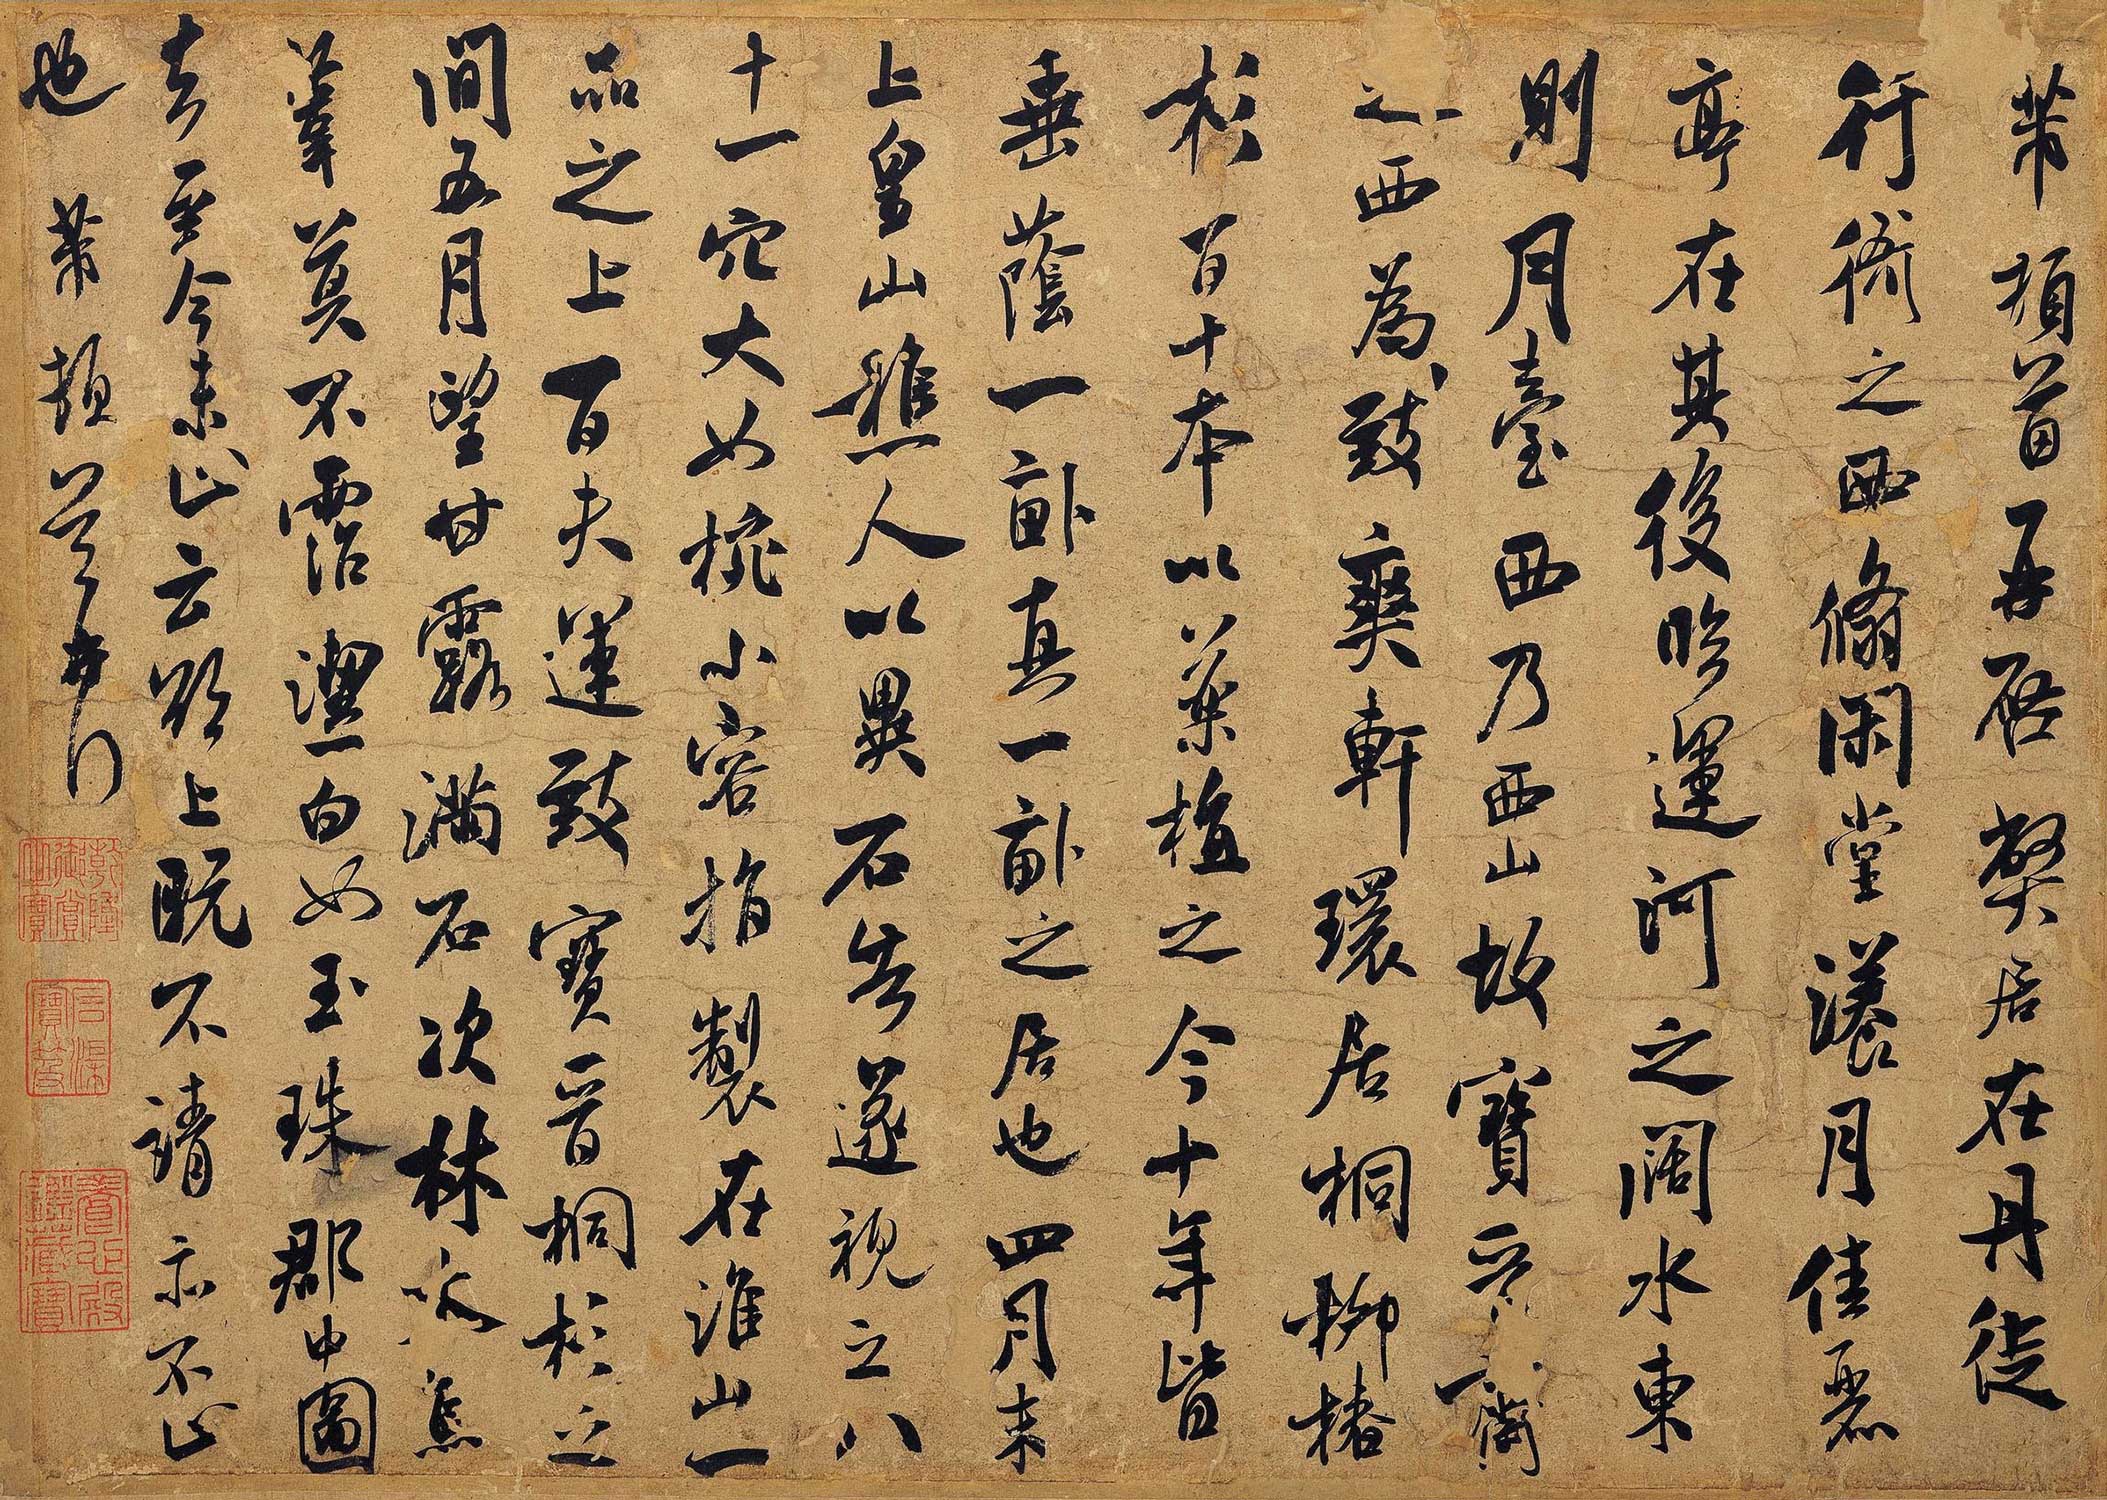 芾頓首再啟弊居在丹徒
行衙之西翛閑堂漾月佳麗
亭在其後臨運河之闊水東
則月臺西乃西山故寶晉齋
之西為致爽軒環居桐柳椿
杉百十本以藥植之今十年皆
垂蔭一畝真一畝之居也四月末
上皇山樵人以異石告遂視之八
十一穴大如椀小容指製在淮山一
品之上百夫運致寶晉桐杉之
間五月望甘露滿石次林焉
葦莫不霑白如玉珠郡中圖
去至今未止云欲上既不請亦不止
也 芾頓首再拜
乾隆御賞之寶
石渠寶笈
養心殿鑑藏寶